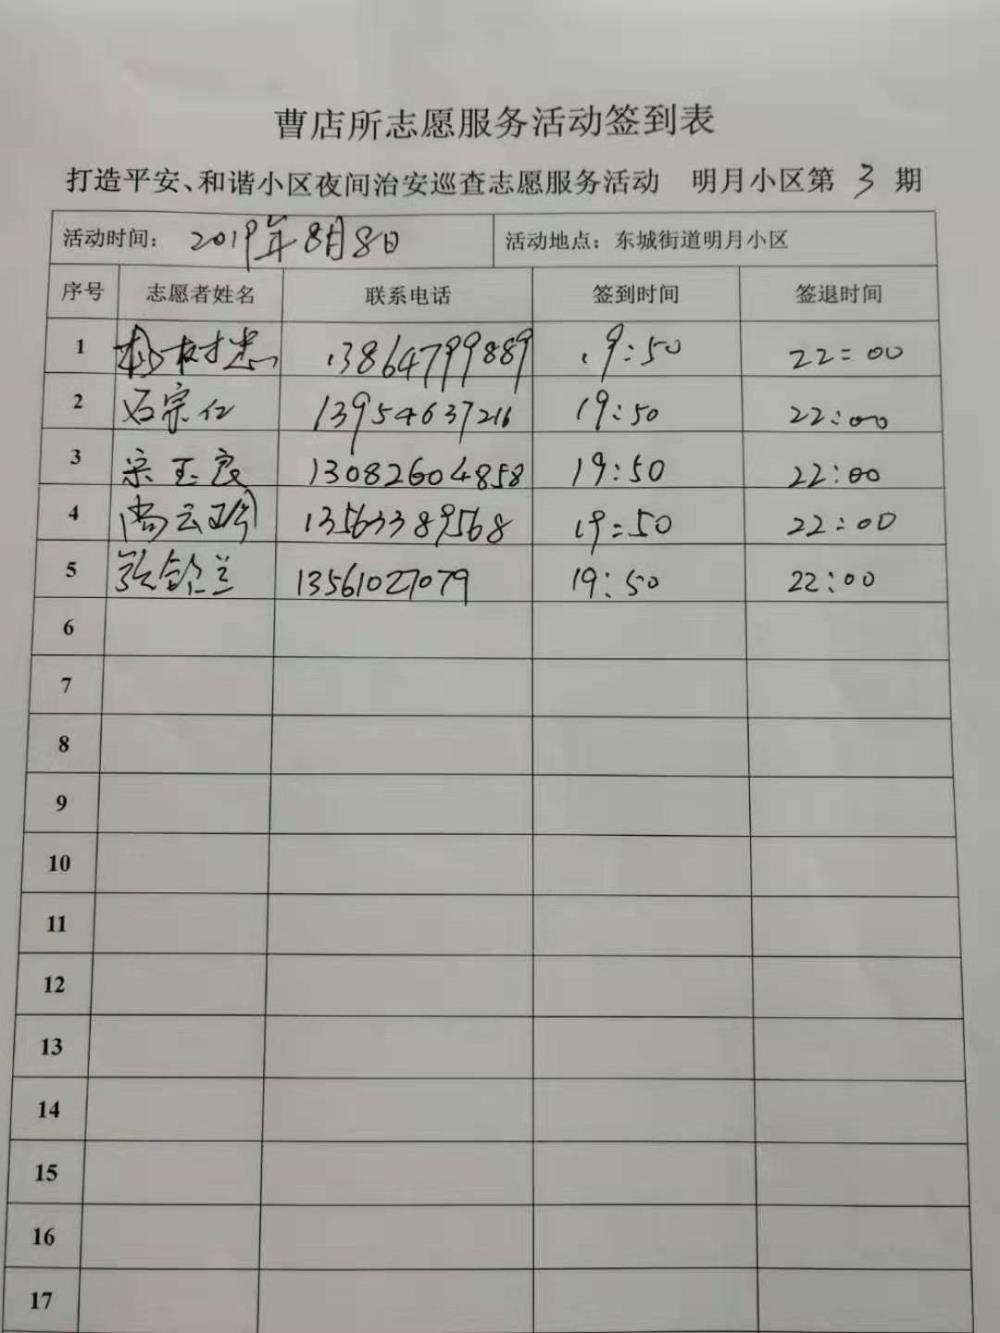 曹店所志愿服务活动签到表
打造平安、和谐小区夜间治安巡查志愿服务活动 明月小区第 3 期
活动时间: 2019年8月8日 活动地点: 东城街道明月小区
序号 志愿者姓名 联系电话 签到时间 签退时间
1 杨树忠 13864799889 19:50 22:00
2 石宗仁 13954637216 19:50 22:00
3 宋玉良 13082604858 19:50 22:00
4 尚云 13563389568 19:50 22:00
5 张兰 13561027079 19:50 22:00
6
7
8
9
10
11
12
13
14
15
16
17